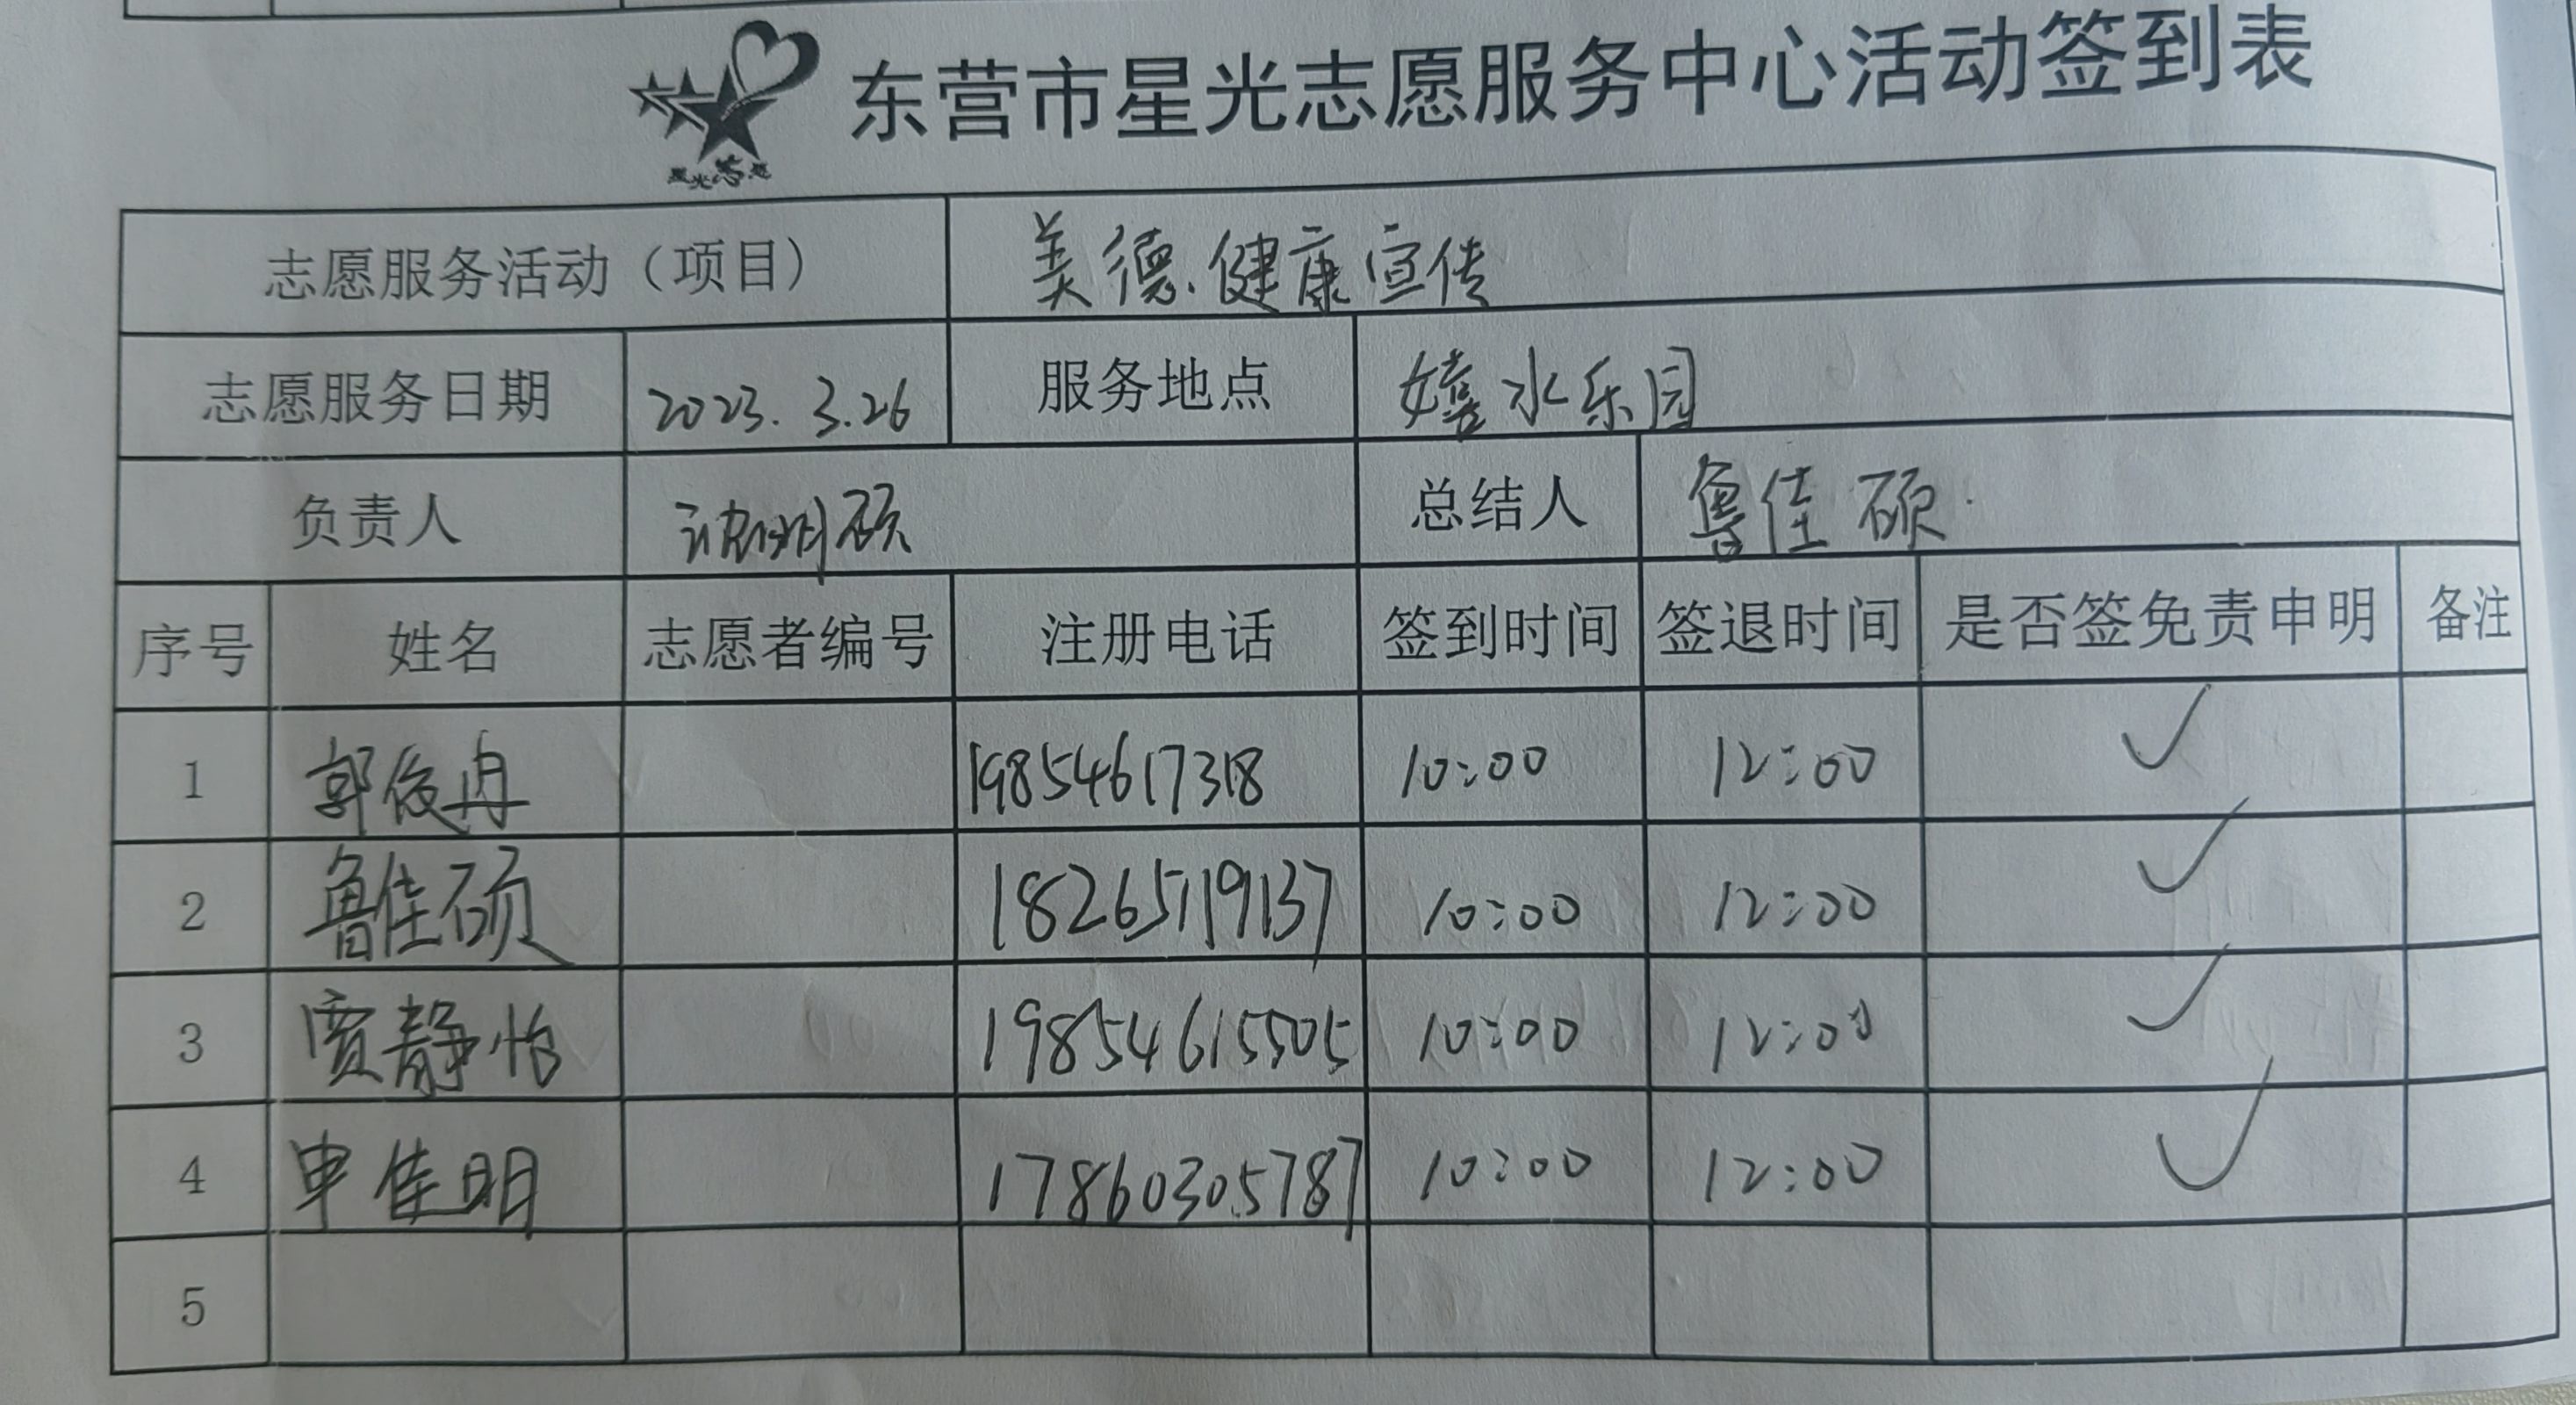 东营市星光志愿服务中心活动签到表
星光志愿
志愿服务活动（项目） 美德、健康宣传
志愿服务日期 2023.3.26 服务地点 嬉水乐园
负责人 明硕 总结人 鲁佳硕
序号 姓名 志愿者编号 注册电话 签到时间 签退时间 是否签免责申明 备注
1 郭俊冉 19854617318 10:00 12:00 ✓
2 鲁佳硕 18265119137 10:00 12:00 ✓
3 贾静怡 19854615505 10:00 12:00 ✓
4 申佳明 17860305787 10:00 12:00 ✓
5